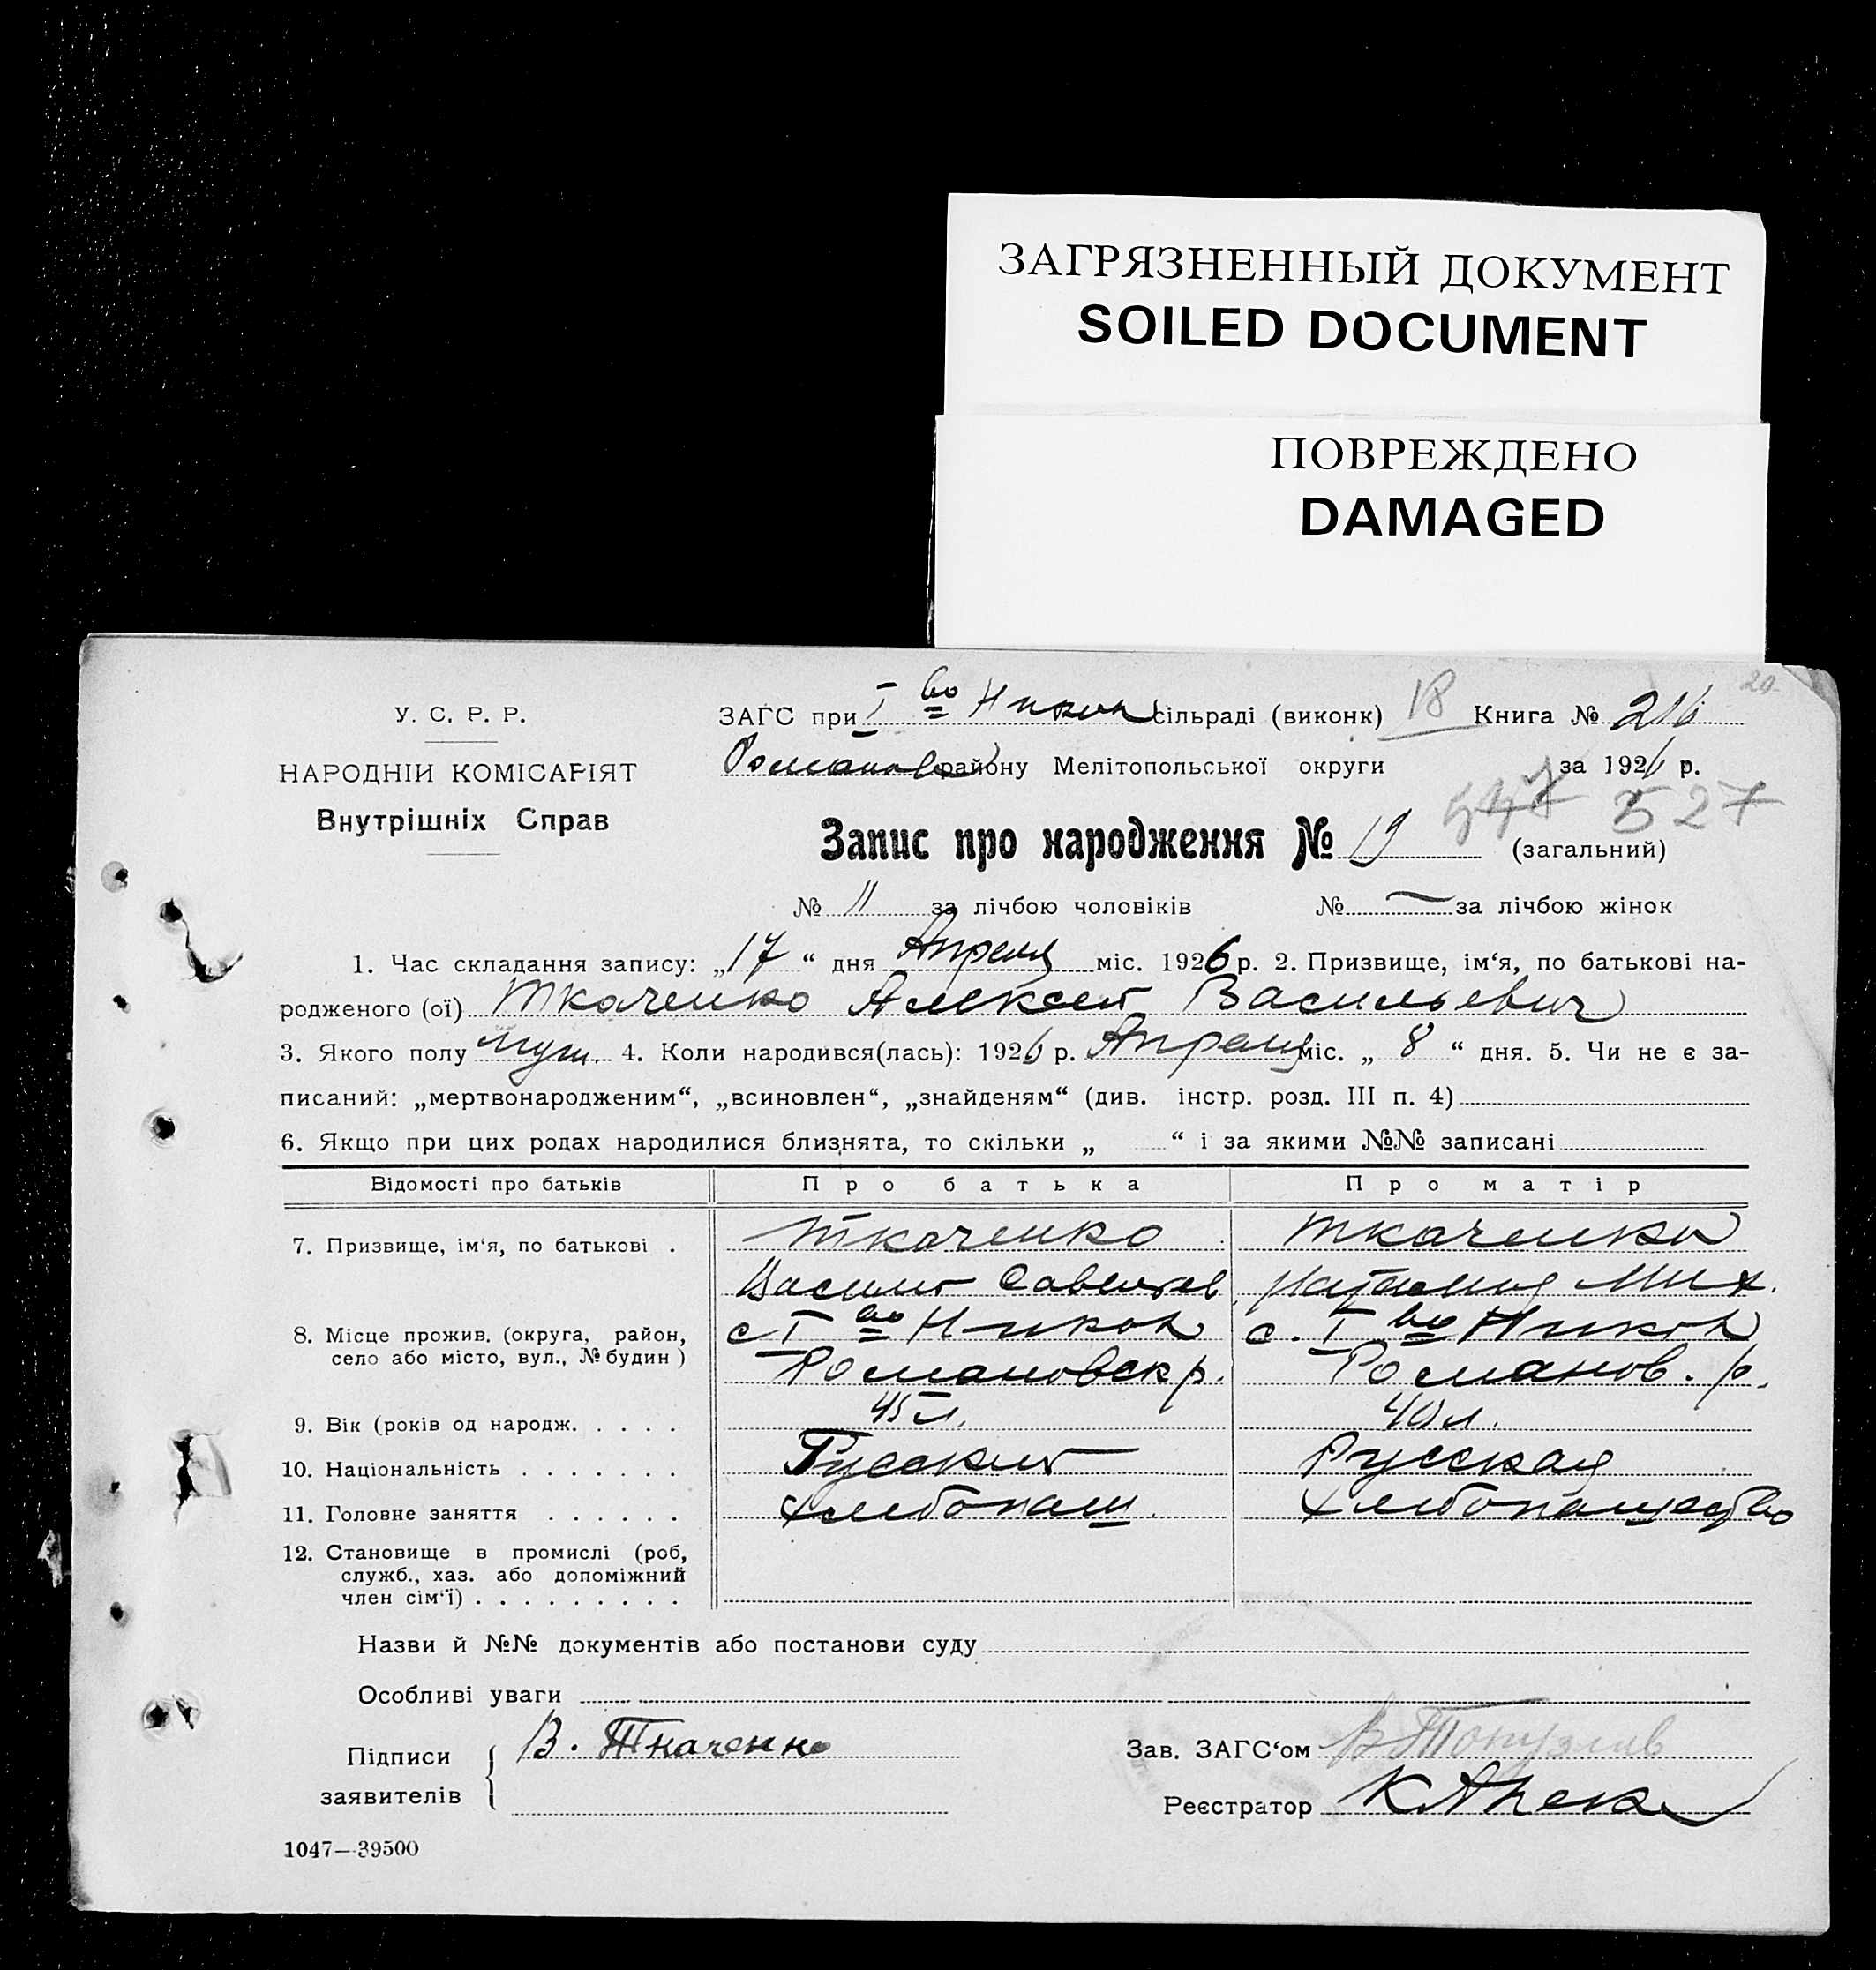 ЗАГРЯЗНЕННЫЙ ДОКУМЕНТ
SOILED DOCUMENT
ПОВРЕЖДЕНО
DAMAGED
20
У. С. Р. Р.
НАРОДНІЙ КОМІСАРІЯТ
Внутрішніх Справ
ЗАГС при І во Никол сільраді (виконк) 18 Книга № 216
Романов району Мелітопольської округи за 1926 р.
547 527
Запис про народження № 19 (загальний)
№ 11 за лічбою чоловіків № — за лічбою жінок
1. Час складання запису: „17“ дня Апреля міс. 1926 р. 2. Призвище, ім‘я, по батькові на-
родженого (ої) Ткаченко Алексей Васильевич
3. Якого полу муж. 4. Коли народився(лась): 1926 р. Апреля міс. „ 8 “ дня. 5. Чи не є за-
писаний: „мертвонародженим“, „всиновлен“, „знайденям“ (див. інстр. розд. III п. 4)
6. Якщо при цих родах народилися близнята, то скільки „ “ і за якими №№ записані
Відомості про батьків Про батька Про матір
7. Призвище, ім‘я, по батькові . Ткаченко Ткаченко
Василий Савельев Мих.
8. Місце прожив. (округа, район, с І во Никол с. І во Никол
село або місто, вул., № будин) Романовск р. Романов. р.
9. Вік (років од народж. . . . . 45 л. 40 л.
10. Національність . . . . . . . Русский Русская
11. Головне заняття . . . . . . Хлебопаш. Хлебопашество
12. Становище в промислі (роб,
служб., хаз. або допоміжний
член сім‘ї) . . . . . . . . .
Назви й №№ документів або постанови суду
Особливі уваги
Підписи В. Ткаченко Зав. ЗАГС‘ом
заявителів Реєстратор
1047—39500